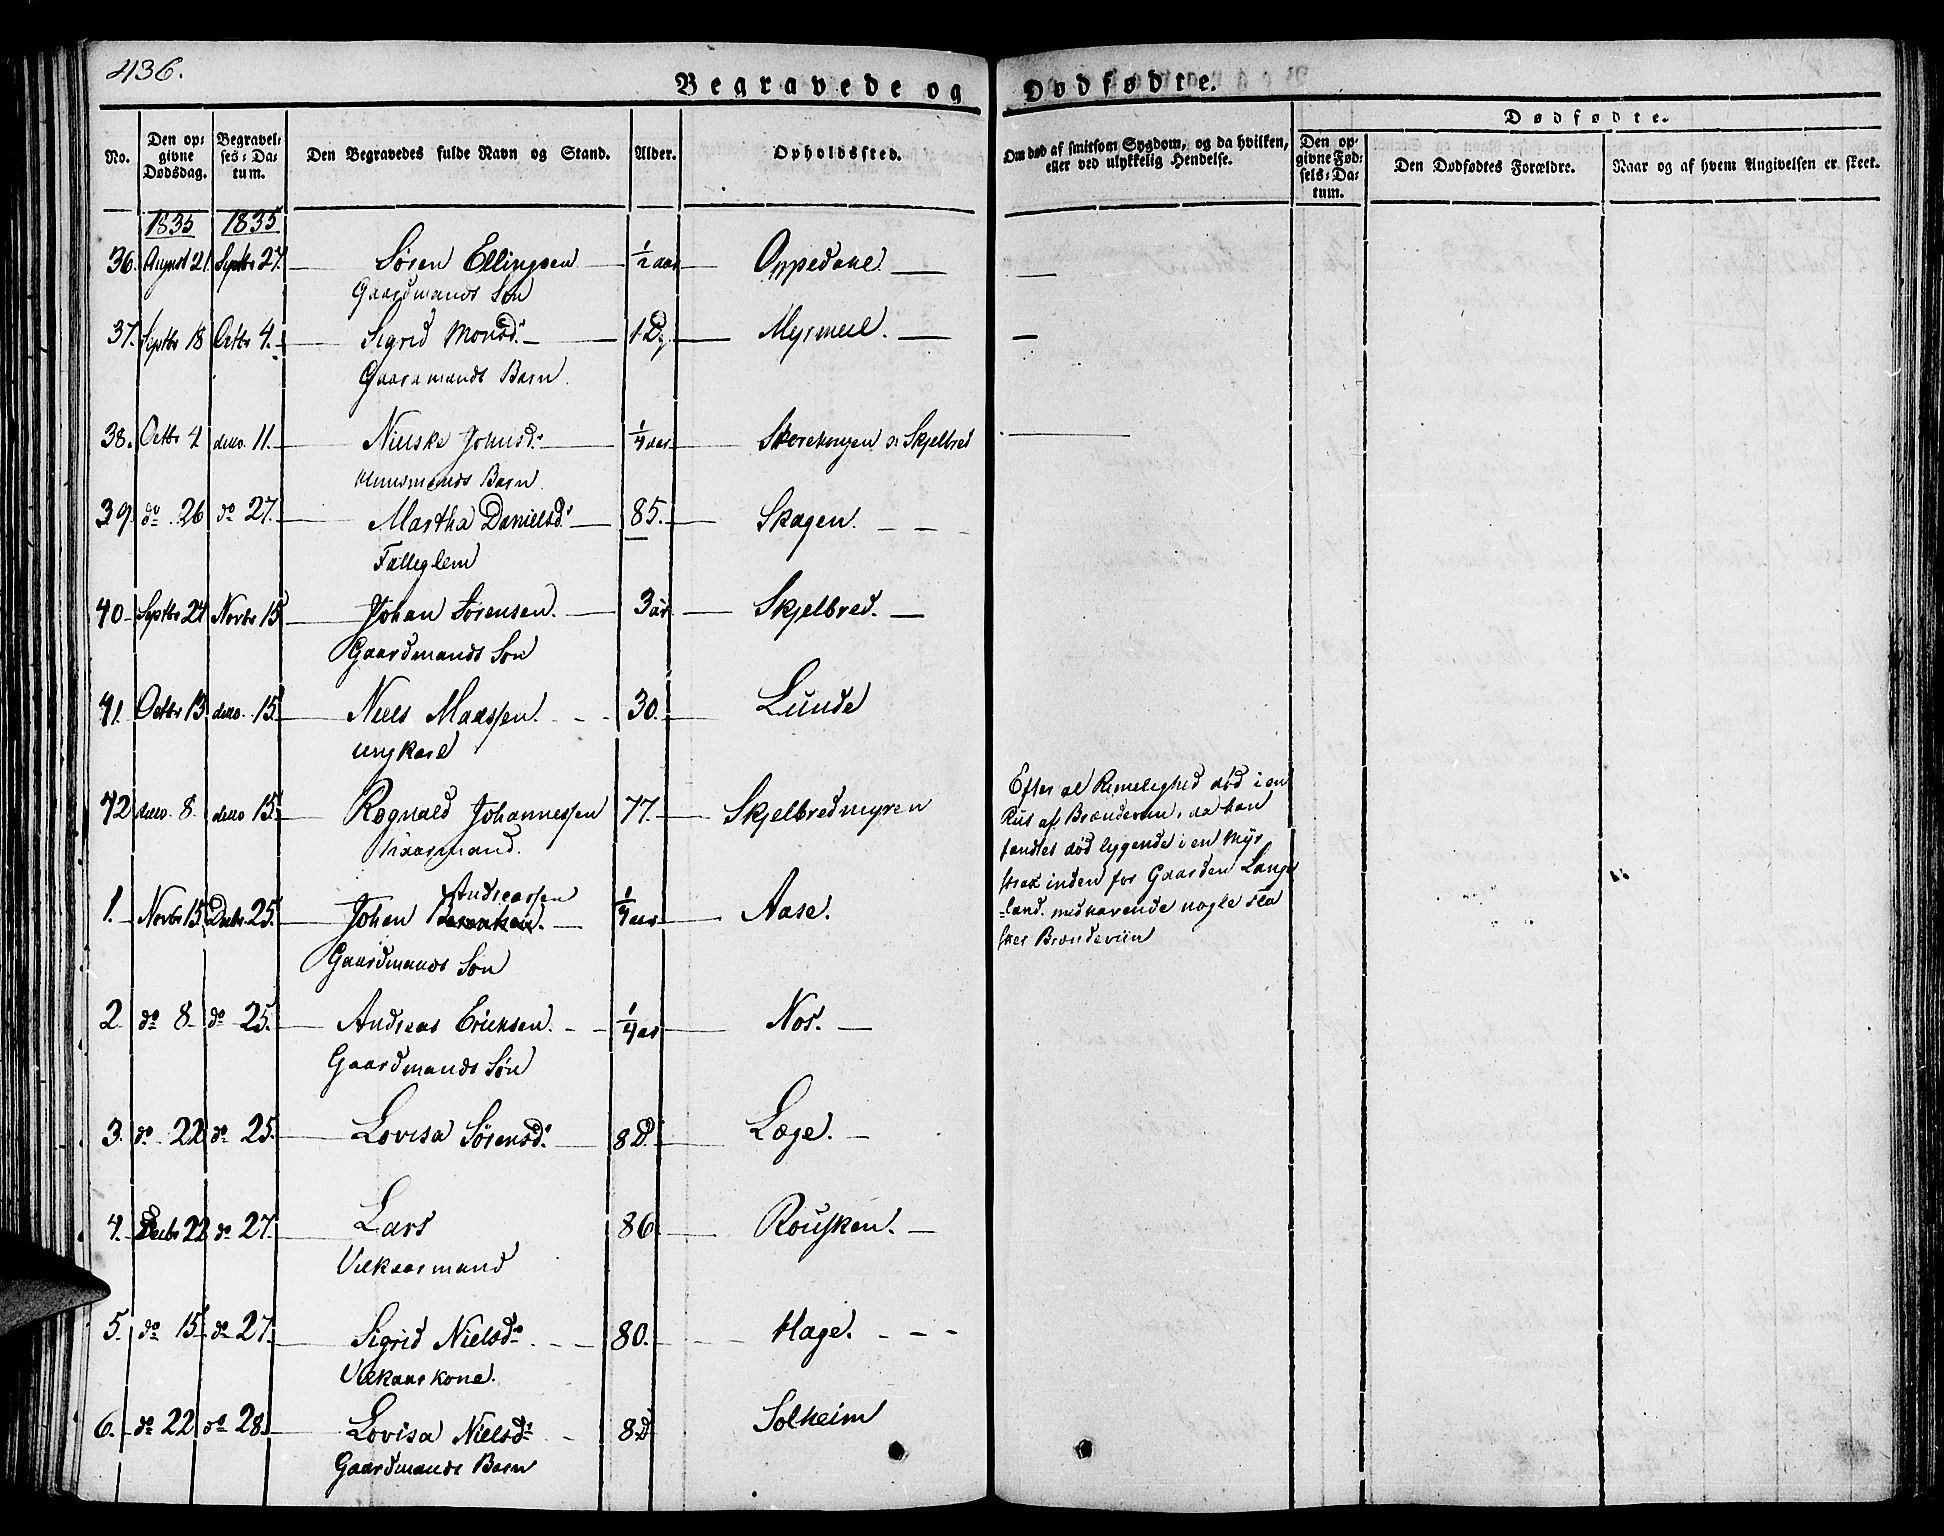 436.
Begravede og Dødfødte.
No.
Den op=
givne
Dødsdag.
Begravel=
ses=Da=
tum.
Den Begravedes fulde Navn og Stand.
Alder.
Opholdssted.
Om død af smitsom Sygdom, og da hvilken,
eller ved ulykkelig Hendelse.
Dødfødte.
Den op=
givne Fød=
sels=Da=
tum.
Den Dødfødtes Forældre.
Naar og af hvem Angivelsen er skeet.
1835 1835
36. August 21 Septbr 27. Søren Ellingsen ½ aar Oppedahl
Gaardmands Søn
37. Septbr 18 Octbr 4. Sigrid Monsd. 1 D. Myrmell.
Gaardmands Barn.
38. Octbr 4 detto. 11. Nielske Johnsd. ¼ aar Skjelbred
Huusmands Barn.
39. do. 26 do 27. Martha Danielsd. 85. Skagen.
Fattiglem
40. Septbr 24 Novbr 15 Johan Sørensen. 3 aar Skjelbred.
Gaardmands Søn
41. Octbr 13. detto. 15. Niels Madssen. 30. Lunde
ungkarl
42 detto. 8. detto 15. Rognald Johannessen 77. Skjelbredmyren
Kaarmand.
Efter al Rimelighed død i en
Ruus af Brændeviin, da han
fandtes død liggende i en Myr
strax inden for Gaarden Lange
=land. medhavende nogle Fla
sker Brændeviin
Andreassen
1. Novbr 15. Decbr. 25. Johan ¼ aar Aase.
Gaardmands Søn
2 do 8. do 25. Andreas Ericksen. ¼ aar Nos.
Gaardmands Søn
3. do 22 do 25. Lovisa Sørensd. 8 D. Læge.
4. Decbr 22 do 27. Lars 86. Rousken.
Vilkaarmand
5. do 15. do 27. Sigrid Nielsd. 80. Hage.
Vilkaarkone.
6. do 22 do 28. Lovisa Nielsd. 8 D Solheim
Gaardmands Barn